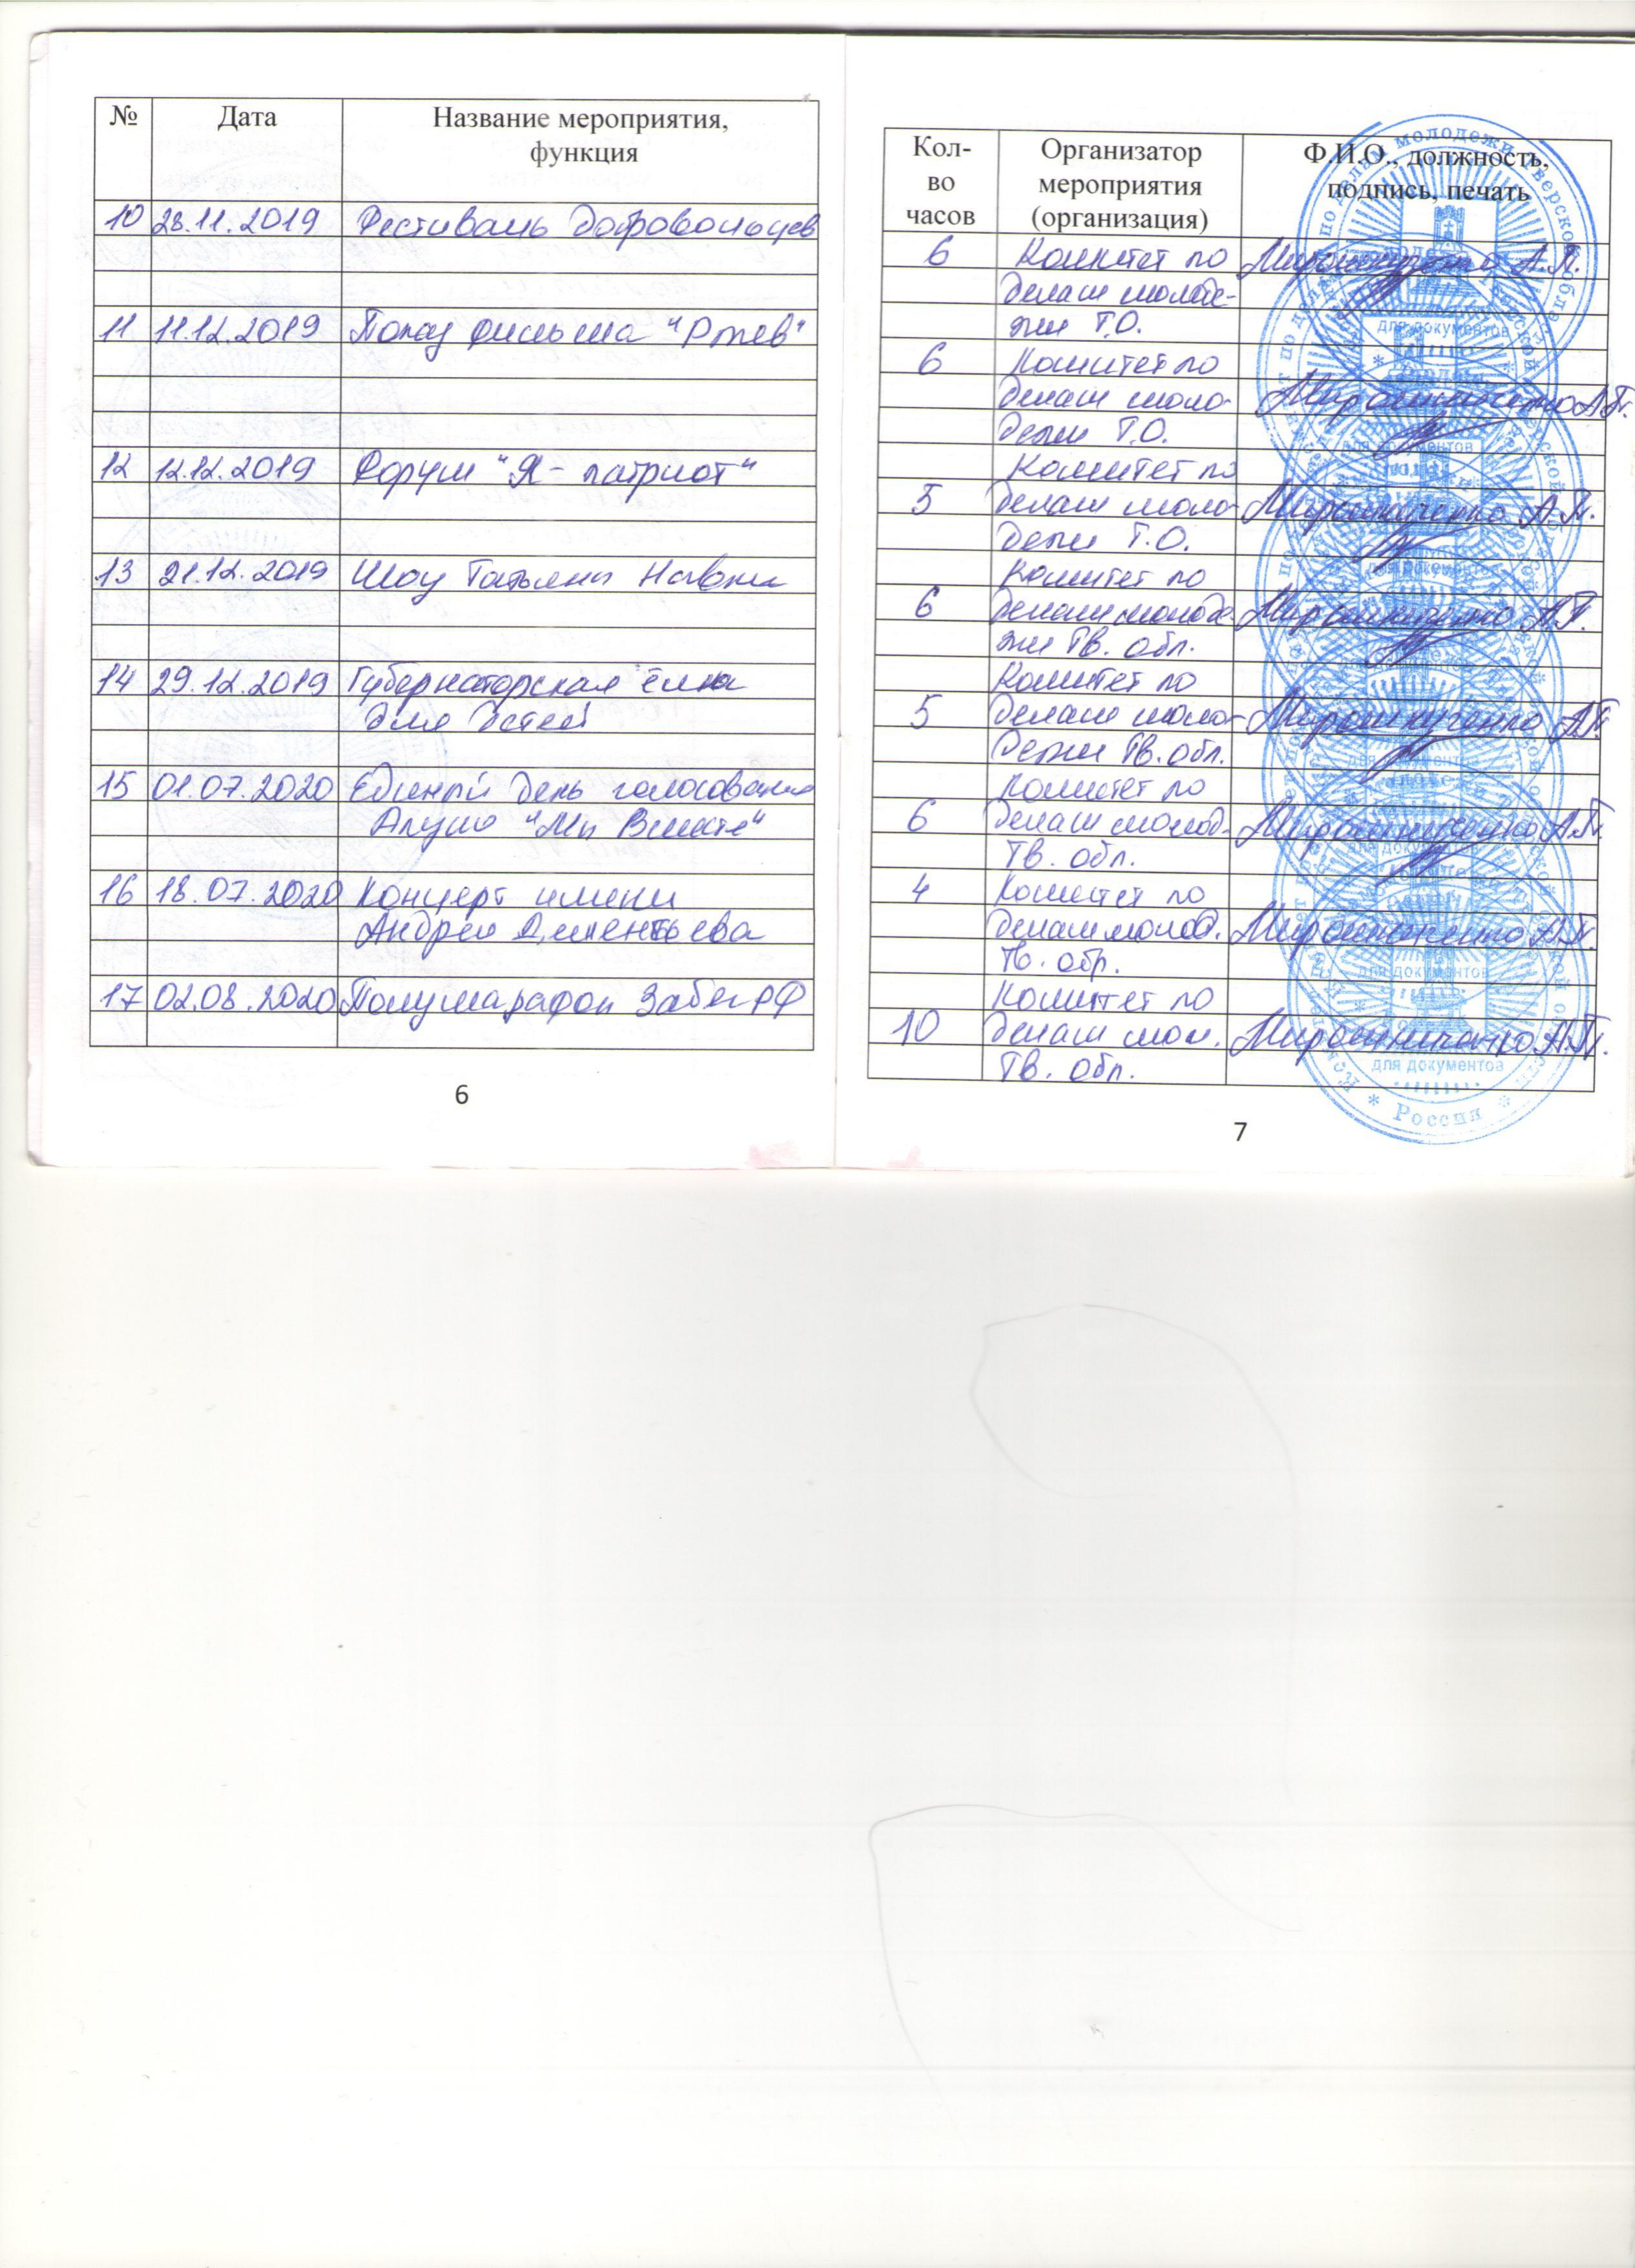 № Дата Название мероприятия,
функция
10 28.11.2019 Фестиваль Добровольцев
11 11.12.2019 Показ фильма "Ржев"
12 12.12.2019 Форум "Я - патриот"
13 21.12.2019 Шоу Татьяны Навки
14 29.12.2019 Губернаторская ёлка
для детей
15 01.07.2020 Единый день голосования
"Мы Вместе"
16 18.07.2020 Концерт имени
Андрея Дементьева
17 02.08.2020 Полумарафон Забег РФ
6
Кол- Организатор Ф.И.О., должность,
во мероприятия подпись, печать
часов (организация)
6 Комитет по Мирошниченко А.П.
делам молоде-
жи Т.О.
6 Комитет по
делам моло- Мирошниченко А.П.
дежи Т.О.
Комитет по
5 делам моло- Мирошниченко А.П.
дежи Т.О.
Комитет по
6 делам молоде- Мирошниченко А.П.
жи Тв. обл.
Комитет по
5 делам моло- Мирошниченко А.П.
дежи Тв. обл.
Комитет по
6 делам молод. Мирошниченко А.П.
Тв. обл.
4 Комитет по
делам молод. Мирошниченко А.П.
Тв. обр.
Комитет по
10 делам мол. Мирошниченко А.П.
Тв. обл.
по делам молодежи Тверской обла
для документов
для документов
для документов
для документов
* Россия *
7